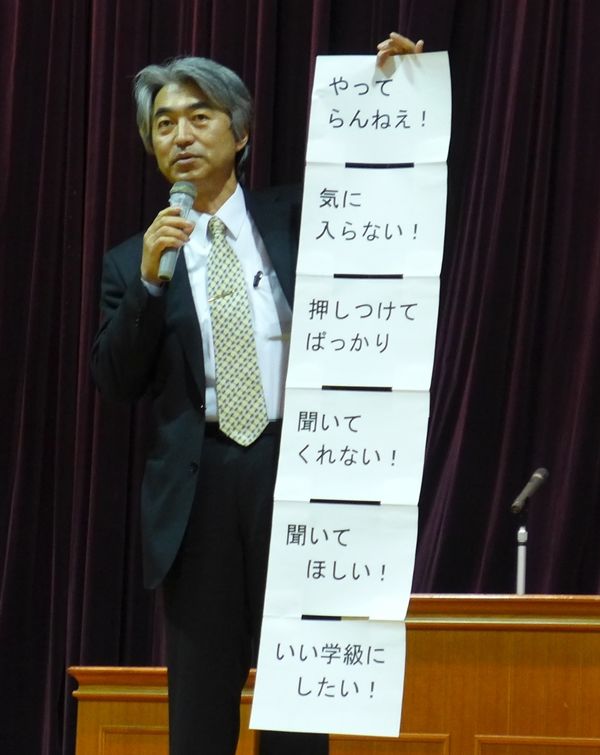 やって
らんねえ！
気に
入らない！
押しつけて
ばっかり
聞いて
くれない！
聞いて
ほしい！
いい学級に
したい！